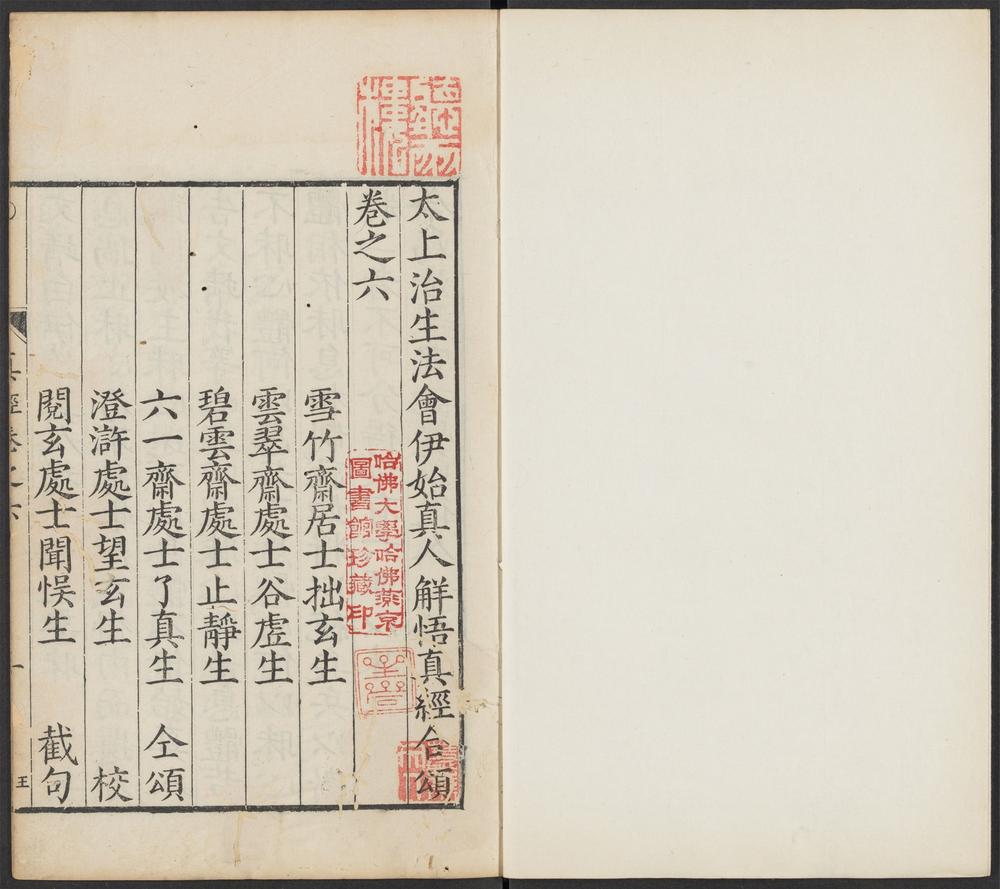 太上治生法會伊始真人解悟真經仝頌
卷之六
雪竹齋居士拙玄生
雲翠齋處士谷虛生
碧雲齋處士止靜生
六一齋處士了真生 仝頌
澄滸處士望玄生 校
閱玄處士聞悞生 截句
真經卷之六
一
王
哈佛大學哈佛燕京
圖書館珍藏印